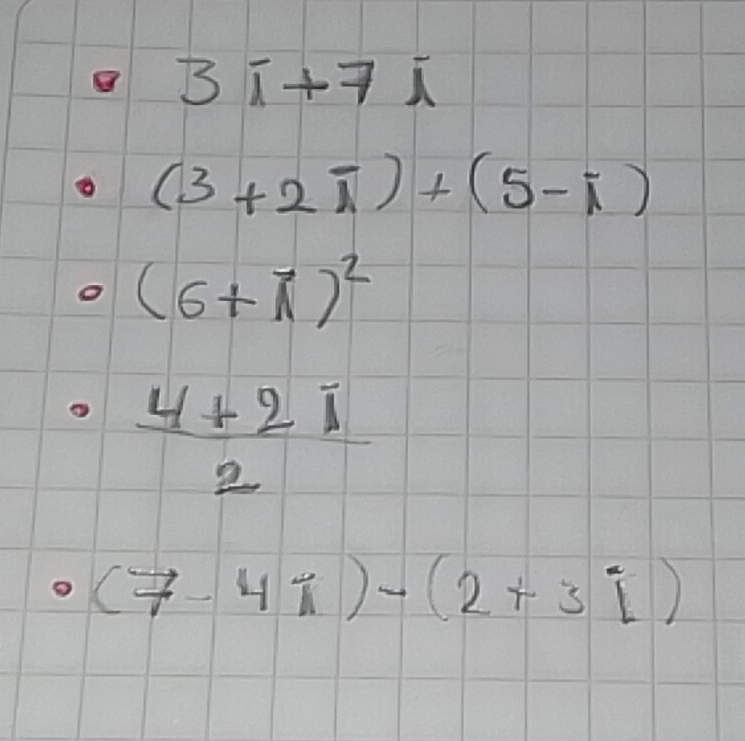 • 3i+7i
• (3+2i)+(5-i)
• (6+i)²
• 4+2i
2
• (7-4i)-(2+3i)